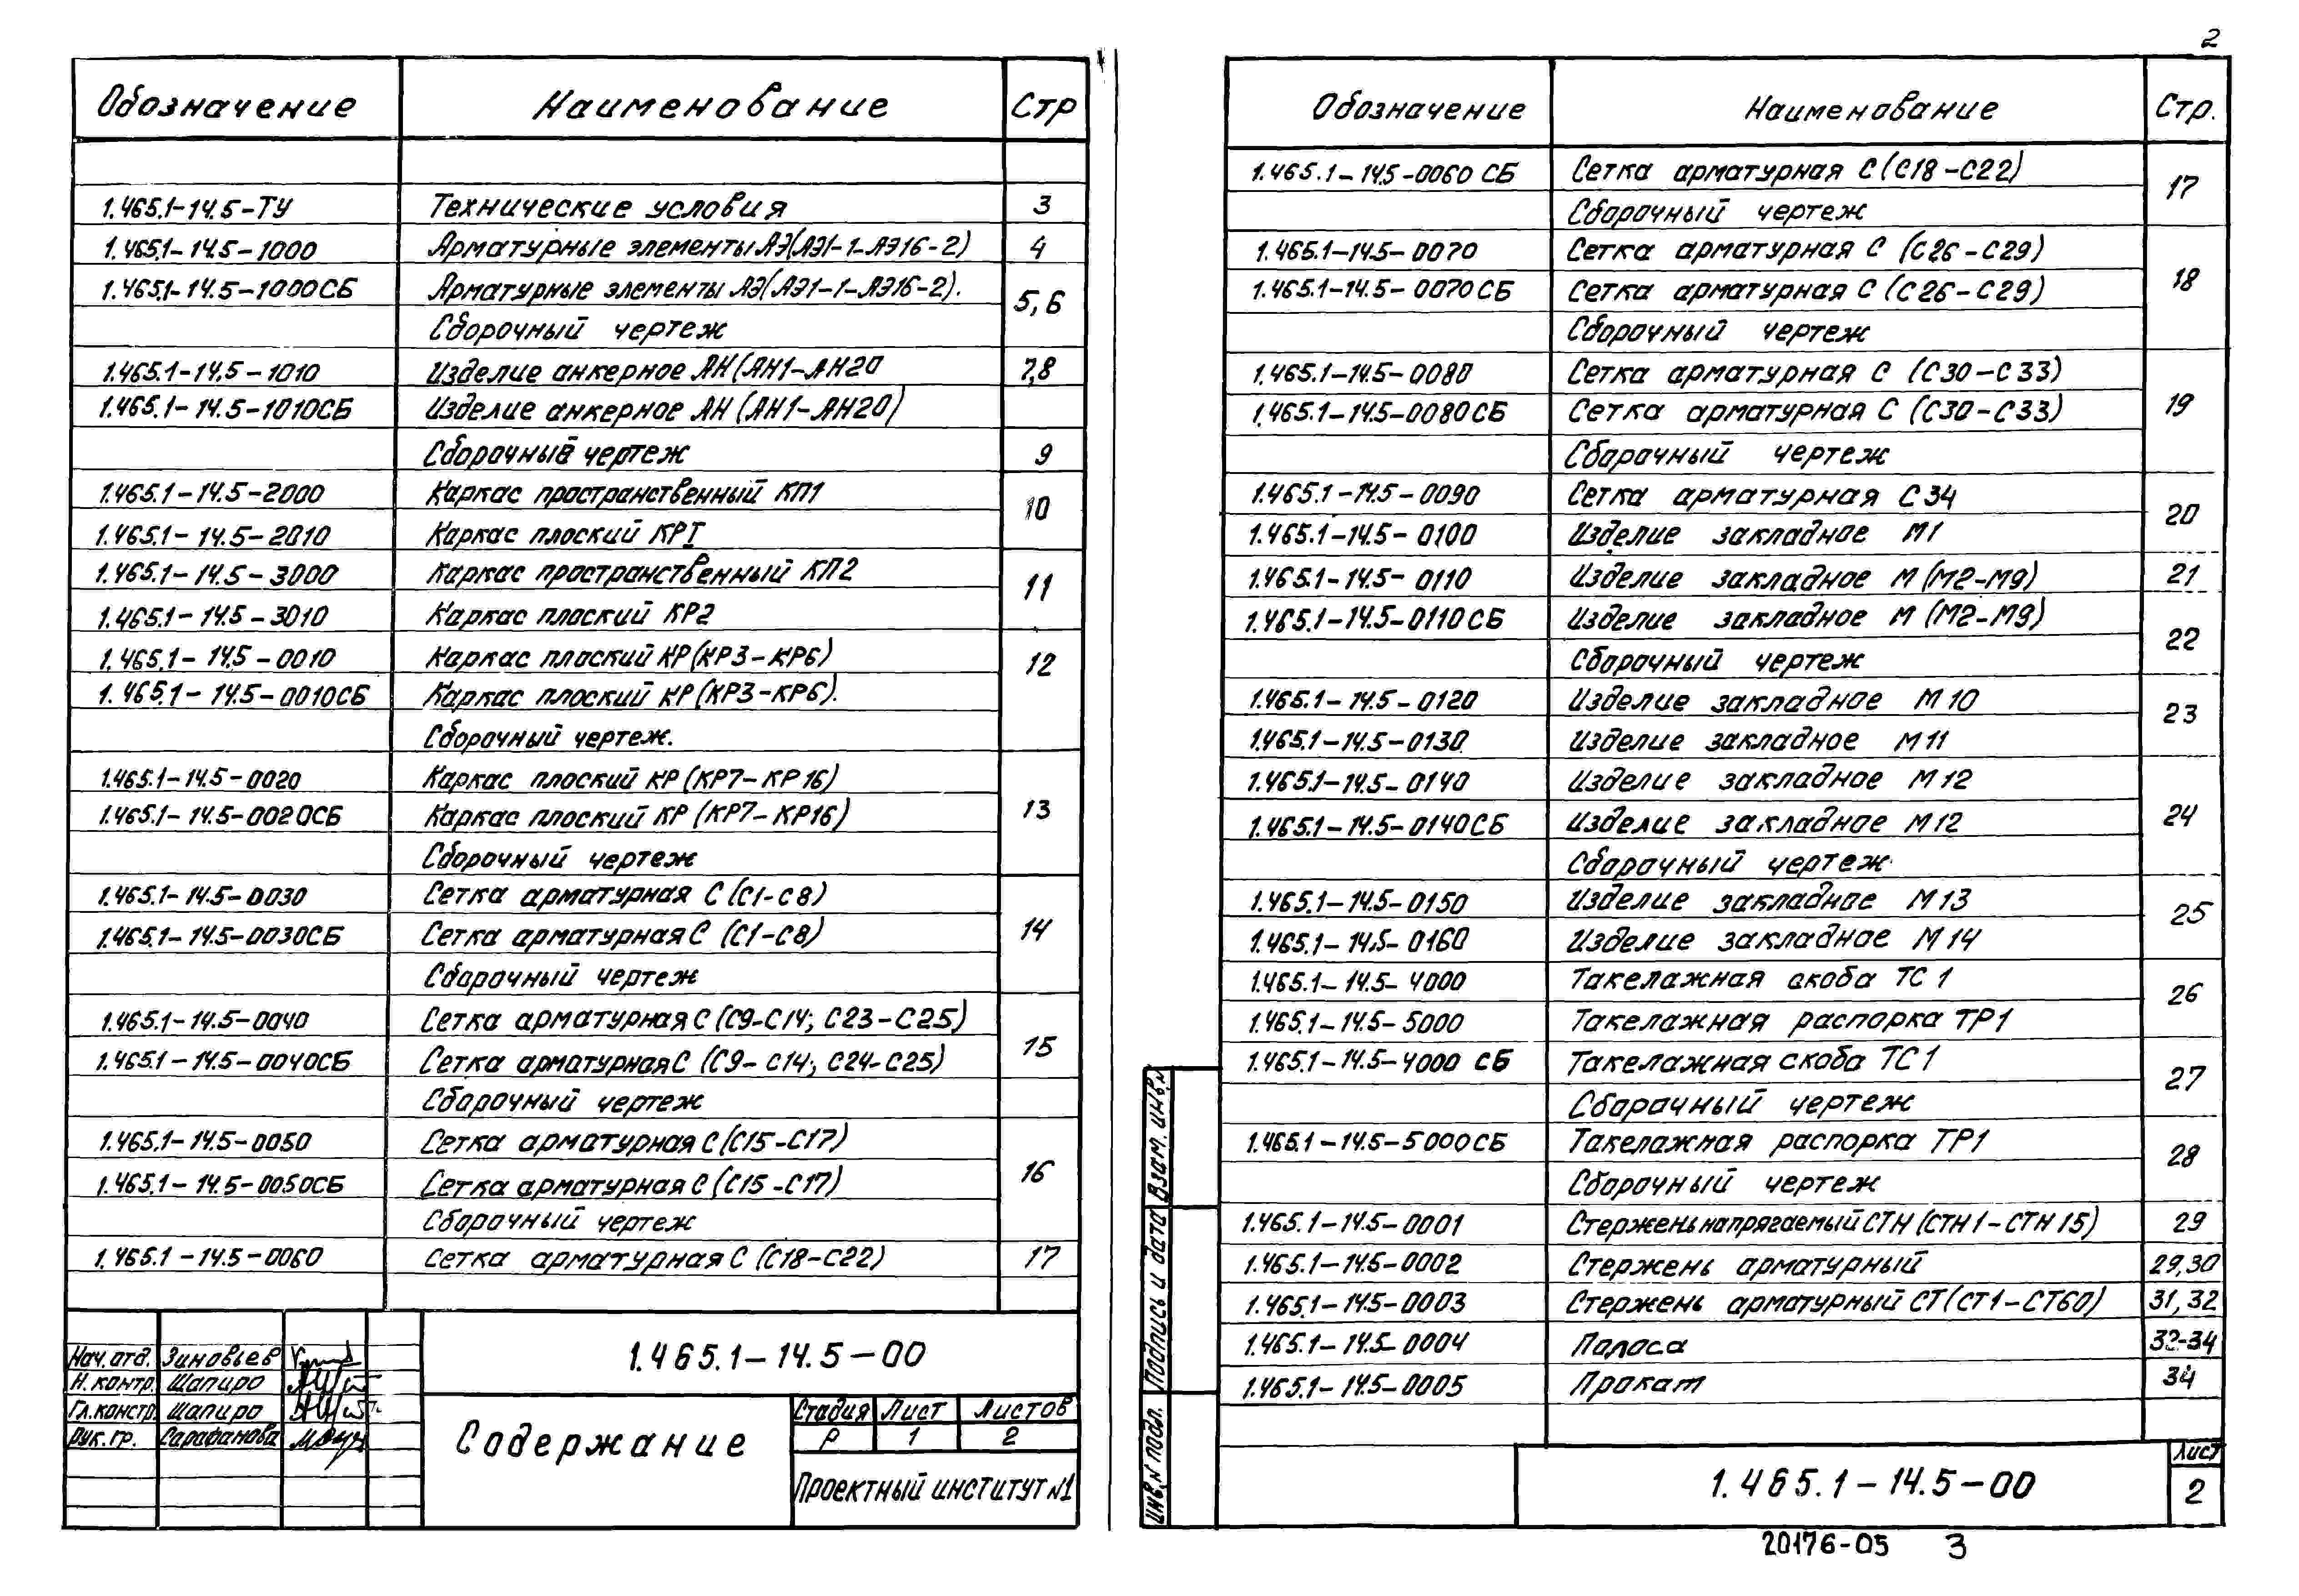 Обозначение Наименование Стр
1.465.1-14.5-ТУ Технические условия 3
1.465.1-14.5-1000 Арматурные элементы АЭ(АЭ1-1-АЭ16-2) 4
1.465.1-14.5-1000СБ Арматурные элементы АЭ(АЭ1-1-АЭ16-2). 5,6
Сборочный чертеж
1.465.1-14.5-1010 Изделие анкерное АН(АН1-АН20 7,8
1.465.1-14.5-1010СБ Изделие анкерное АН (АН1-АН20)
Сборочный чертеж 9
1.465.1-14.5-2000 Каркас пространственный КП1 10
1.465.1-14.5-2010 Каркас плоский КРI
1.465.1-14.5-3000 Каркас пространственный КП2 11
1.465.1-14.5-3010 Каркас плоский КР2
1.465.1-14.5-0010 Каркас плоский КР(КР3-КР6) 12
1.465.1-14.5-0010СБ Каркас плоский КР(КР3-КР6).
Сборочный чертеж.
1.465.1-14.5-0020 Каркас плоский КР(КР7-КР16) 13
1.465.1-14.5-0020СБ Каркас плоский КР (КР7-КР16)
Сборочный чертеж
1.465.1-14.5-0030 Сетка арматурная С (С1-С8) 14
1.465.1-14.5-0030СБ Сетка арматурная С (С1-С8)
Сборочный чертеж
1.465.1-14.5-0040 Сетка арматурная С (С9-С14; С23-С25) 15
1.465.1-14.5-0040СБ Сетка арматурная С (С9-С14; С24-С25)
Сборочный чертеж
1.465.1-14.5-0050 Сетка арматурная С(С15-С17) 16
1.465.1-14.5-0050СБ Сетка арматурная С (С15-С17)
Сборочный чертеж
1.465.1-14.5-0060 Сетка арматурная С (С18-С22) 17
Нач.отд. Зиновьев
Н.контр. Шапиро
Гл.констр. Шапиро
Рук.гр. Сарафанова
1.465.1-14.5-00
Содержание
Стадия Лист Листов
Р 1 2
Проектный институт №1
2
Обозначение Наименование Стр.
1.465.1-14.5-0060 СБ Сетка арматурная С(С18-С22) 17
Сборочный чертеж
1.465.1-14.5-0070 Сетка арматурная С (С26-С29) 18
1.465.1-14.5-0070СБ Сетка арматурная С (С26-С29)
Сборочный чертеж
1.465.1-14.5-0080 Сетка арматурная С (С30-С33) 19
1.465.1-14.5-0080СБ Сетка арматурная С (С30-С33)
Сборочный чертеж
1.465.1-14.5-0090 Сетка арматурная С34 20
1.465.1-14.5-0100 Изделие закладное М1
1.465.1-14.5-0110 Изделие закладное М (М2-М9) 21
1.465.1-14.5-0110СБ Изделие закладное М (М2-М9) 22
Сборочный чертеж
1.465.1-14.5-0120 Изделие закладное М10 23
1.465.1-14.5-0130 Изделие закладное М11
1.465.1-14.5-0140 Изделие закладное М12 24
1.465.1-14.5-0140СБ Изделие закладное М12
Сборочный чертеж
1.465.1-14.5-0150 Изделие закладное М13 25
1.465.1-14.5-0160 Изделие закладное М14
1.465.1-14.5-4000 Такелажная скоба ТС1 26
1.465.1-14.5-5000 Такелажная распорка ТР1
1.465.1-14.5-4000 СБ Такелажная скоба ТС1 27
Сборочный чертеж
1.465.1-14.5-5000СБ Такелажная распорка ТР1 28
Сборочный чертеж
1.465.1-14.5-0001 Стержень напрягаемый СТН (СТН1-СТН15) 29
1.465.1-14.5-0002 Стержень арматурный 29,30
1.465.1-14.5-0003 Стержень арматурный СТ(СТ1-СТ60) 31,32
1.465.1-14.5-0004 Полоса 32-34
1.465.1-14.5-0005 Прокат 34
Взам. инв.№
Подпись и дата
Инв.№ подл.
1.465.1-14.5-00
Лист
2
20176-05 3